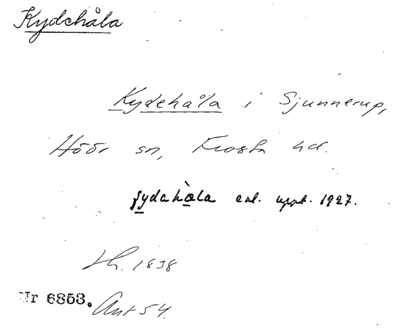 Kydehåla
Kydehåla i Sjunnerup,
Höör sn, Frosta hd.
enl. uppt. 1927.
1838
Nr 6853. Ant 54.